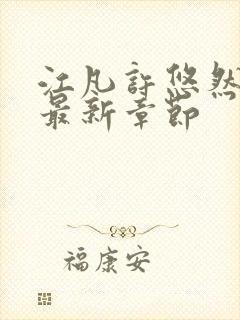 江凡許悠然
最新章節
福康安